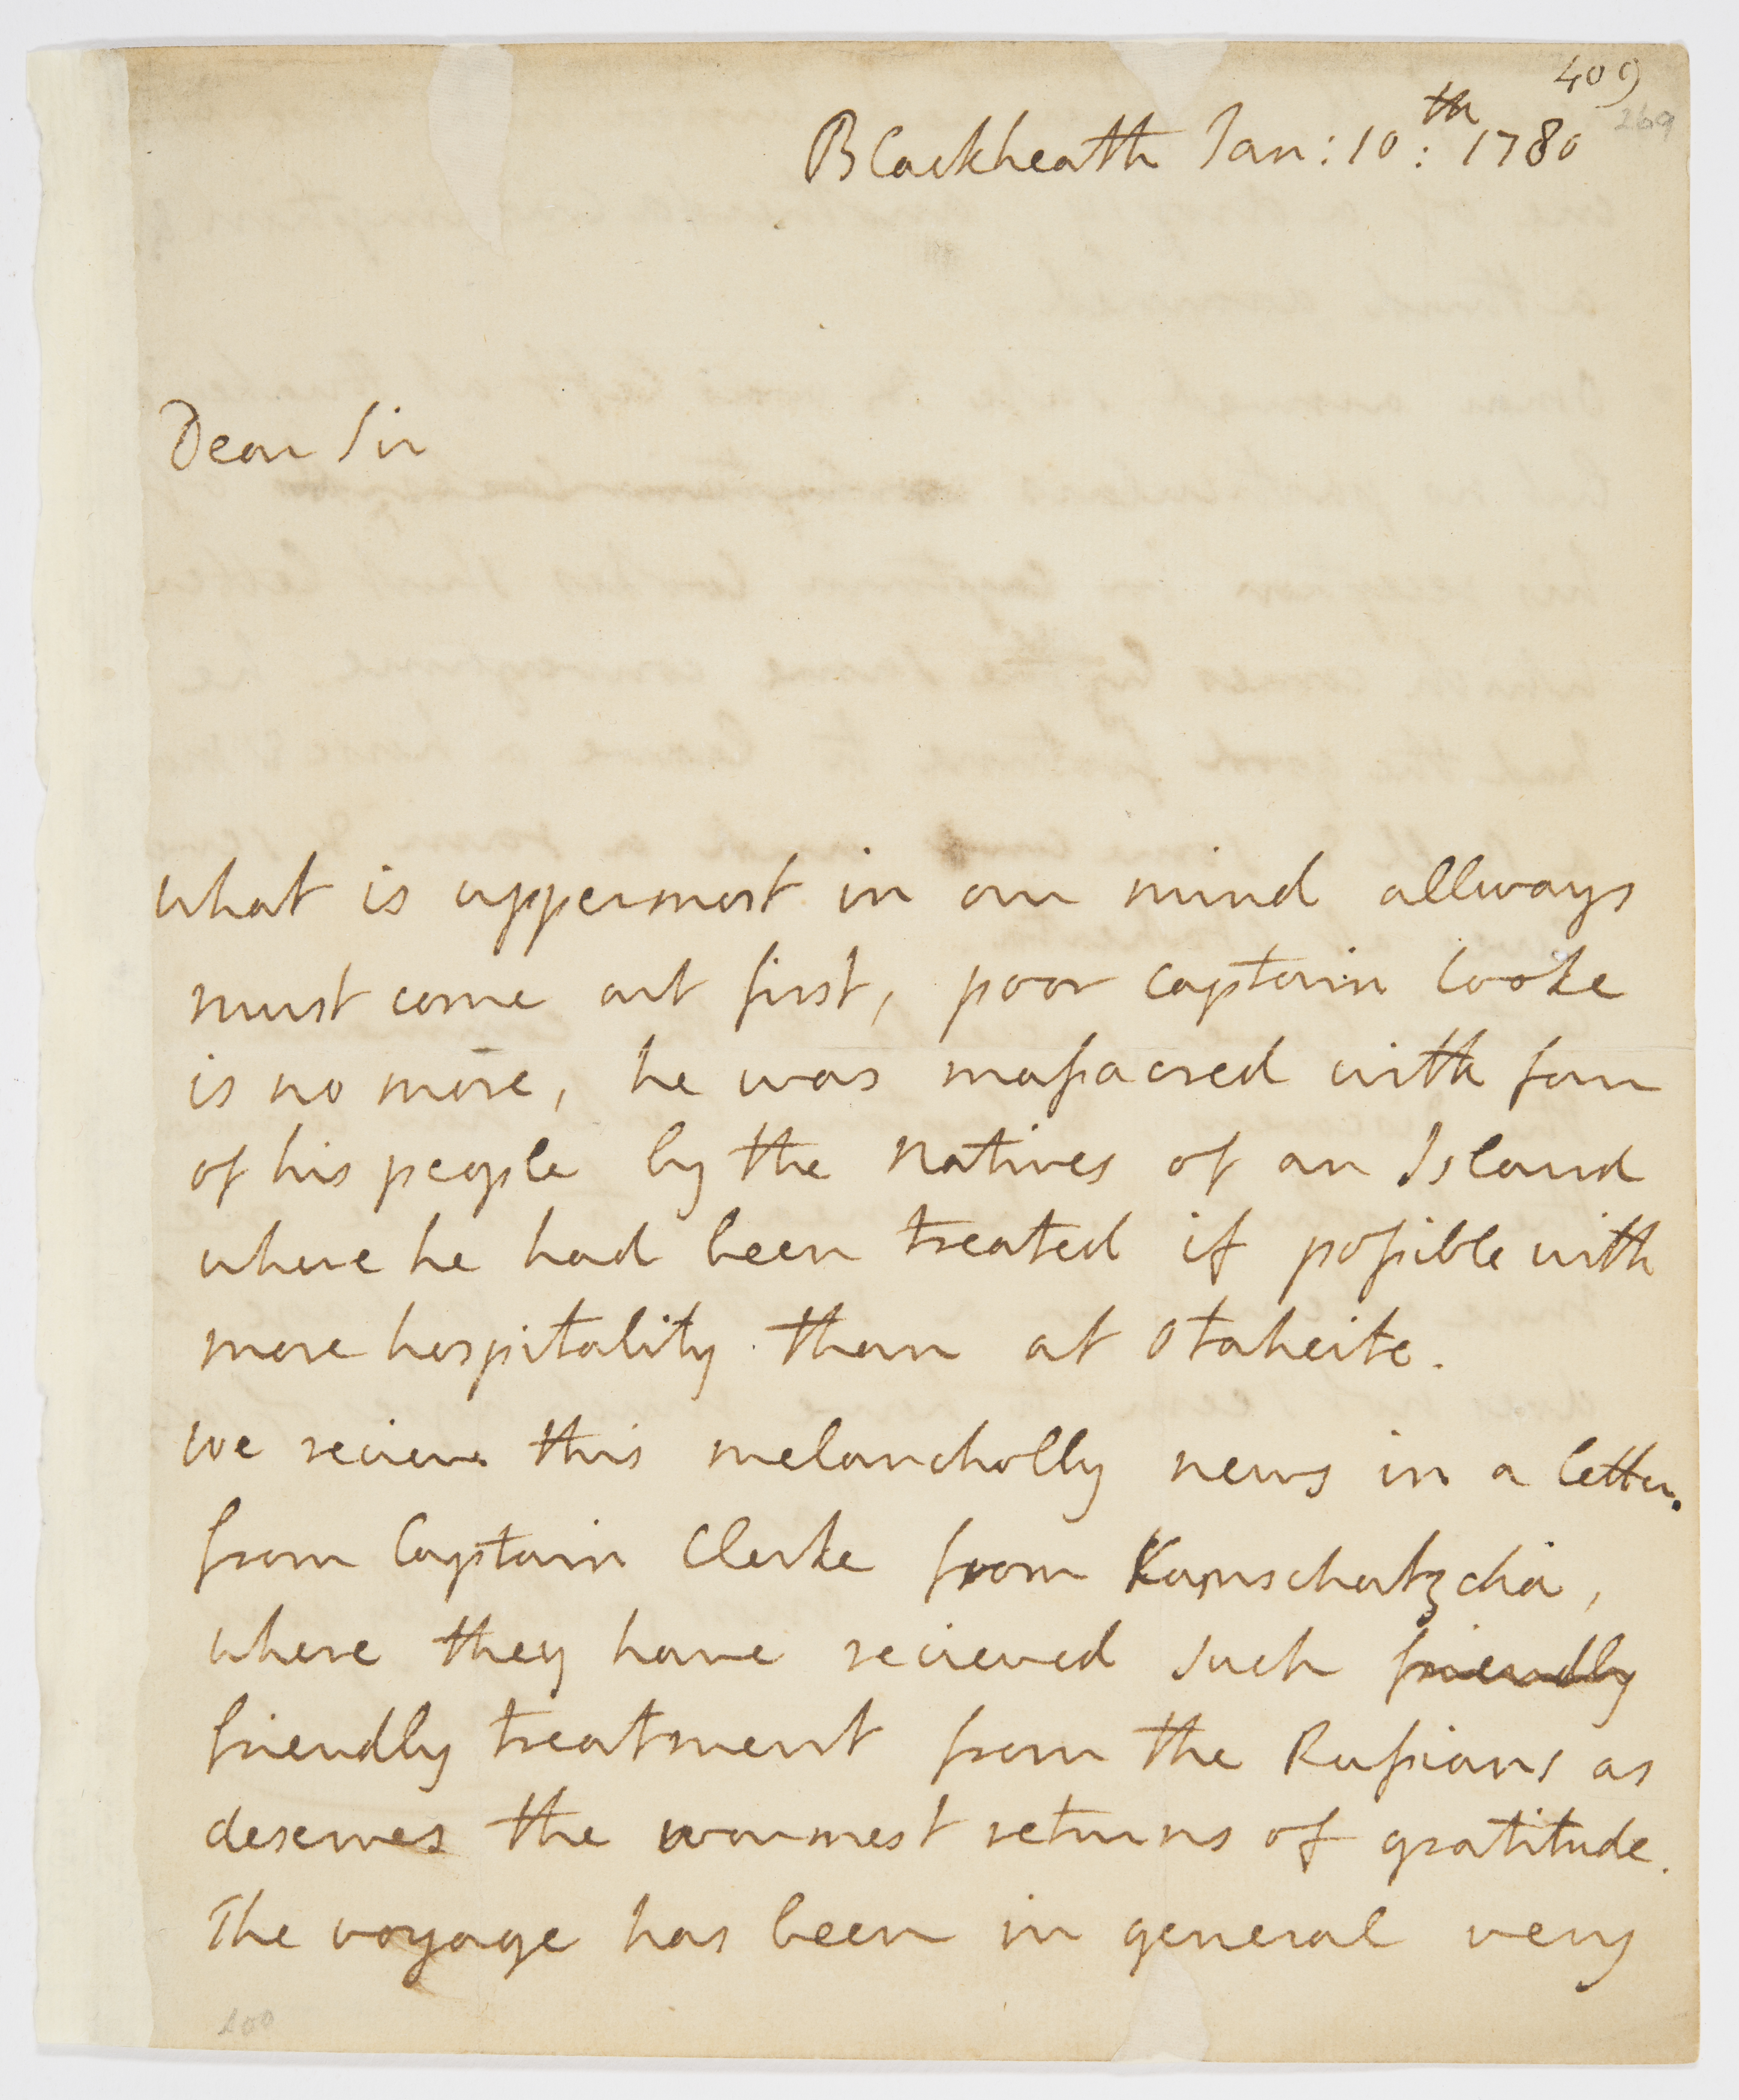 409
269
Blackheath Jan: 10th: 1780
Dear Sir
what is uppermost in our mind allways
must come out first, poor captain Cooke
is no more, he was maſsacred with four
of his people by the Natives of an Island
where he had been treated if poſsible with
more hospitality than at Otaheite.
We recieve this melancholly news in a letter
from Captain Clerke from Kamschatzcha,
where they have recieved such friendly
friendly treatment from the Ruſsians as
deserves the warmest returns of gratitude.
The voyage has been in general very